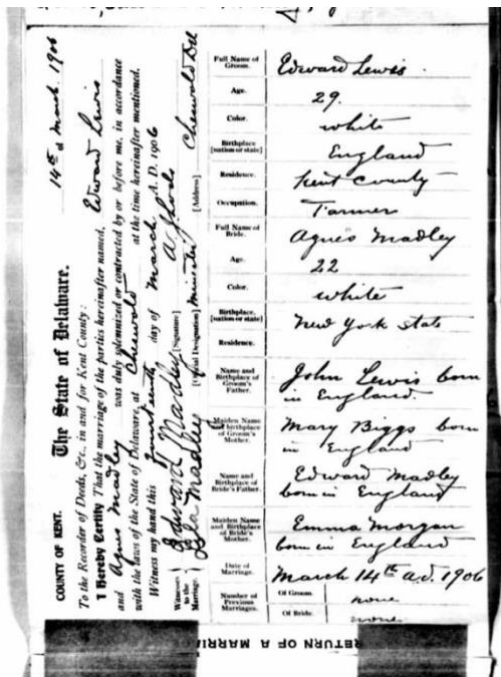 COUNTY OF KENT.
The State of Delaware.
14th of March. 1906
To the Recorder of Deeds, &c., in and for Kent County:
I Hereby Certify That the marriage of the parties hereinafter named, Edward Lewis
and Agnes Madley was duly solemnized or contracted by or before me, in accordance
with the laws of the State of Delaware, at Cheswold at the time hereinafter mentioned.
Witness my hand this fourteenth day of March A. D. 1906
Witnesses to the Marriage.
Edward Madley
Madley
[Signature]
[Official Designation] Minister
[Address] Cheswold Del
Full Name of Groom. Edward Lewis
Age. 29.
Color. white
Birthplace [nation or state] England
Residence. Kent County
Occupation. Farmer
Full Name of Bride. Agnes Madley
Age. 22
Color. white
Birthplace. [nation or state] New York State
Residence.
Name and Birthplace of Groom's Father. John Lewis born
in England
Maiden Name and Birthplace of Groom's Mother. Mary Biggs born
in England
Name and Birthplace of Bride's Father. Edward Madley
born in England
Maiden Name and Birthplace of Bride's Mother. Emma Morgan
born in England
Date of Marriage. March 14th A.D. 1906
Number of Previous Marriages.
Of Groom. none
Of Bride. none
RETURN OF A MARRIA